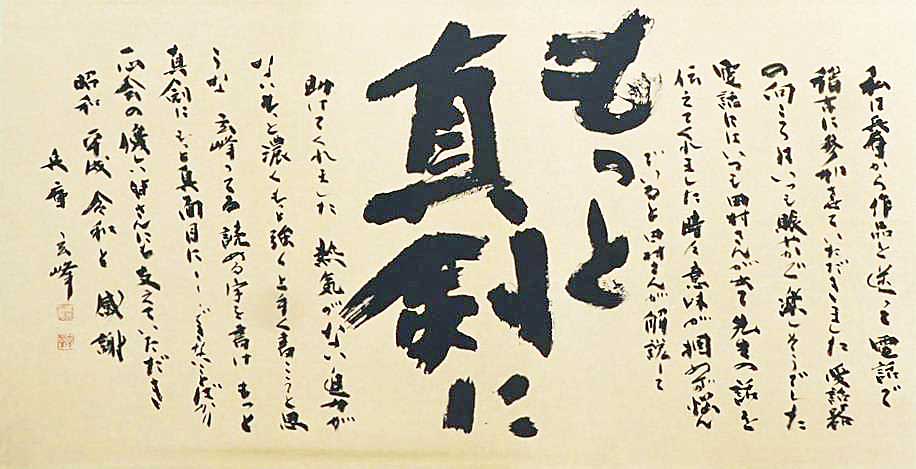 私は兵庫から作品を送って電話で
稽古に参加させていただきました 受話器
の向こうはいつも賑やかで楽しそうでした
電話にはいつも田村さんが出て先生の話を
伝えてくれました 時々意味が掴めず悩ん
でいると田村さんが解説して
もっと
真剣に
助けてくれました 熱気がない 迫力が
ない もっと濃くもっと強く 上手く書こうと思
うな 玄峰って読める字を書け もっと
真剣にもっと真面目に……できないことばかり
会の 皆さんにも支えていただき
昭和 平成 令和と 感謝
兵庫 玄峰